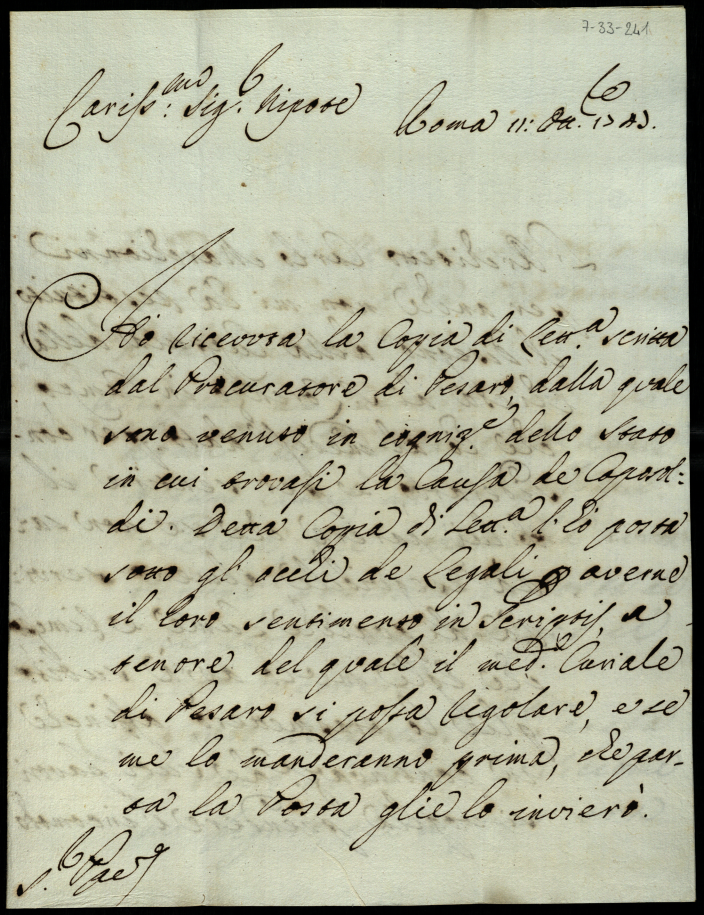 7-33-241
Cariss:mo Sig.r Nipote
Roma 11: Ott.e 1783.
Ho ricevuta la Copia di Lett.a scritta
dal Procuratore di Pesaro, dalla quale
sono venuto in cogniz.e dello Stato
in cui trovasi la Causa de Caposol:
di. Detta Copia di Lett.a l'hò posta
sotto gl'occhi de Legali p averne
il loro sentimento in Scriptis, a
tenore del quale il med.o Curiale
di Pesaro si possa regolare, e se
me lo manderanno prima, che par-
ta la Posta glie lo invierò.